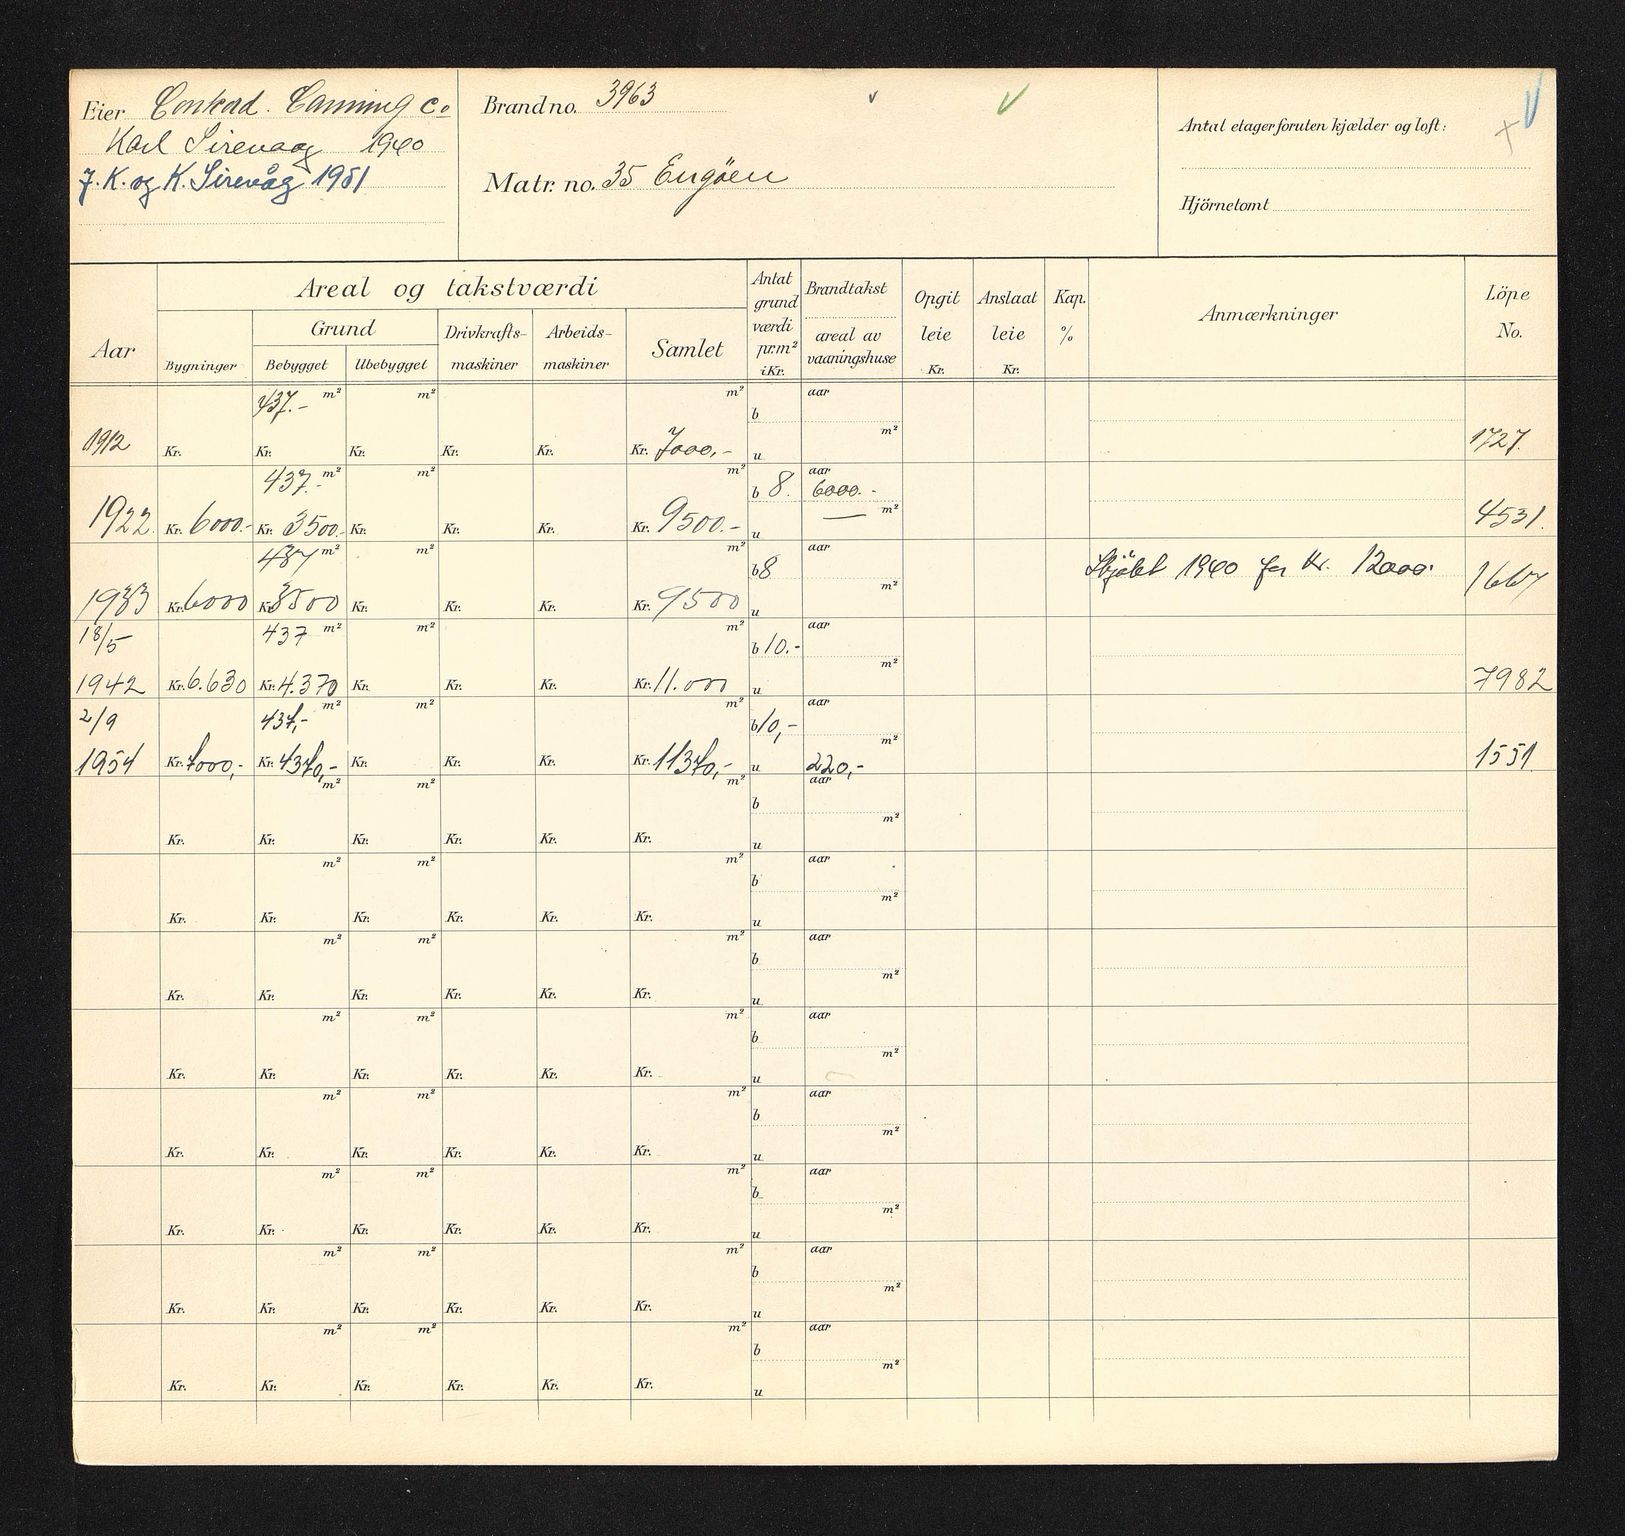 Eier Conrad. Canning Co
Karl Sirevaag 1940
J. K. og K. Sirevåg 1951
Brandno. 3963
Matr. no. 35 Engöen
Antal etager foruten kjælder og loft:
Hjörnetomt
Aar
Areal og takstværdi
Bygninger
Grund
Bebygget
Ubebygget
Drivkrafts-
maskiner
Arbeids-
maskiner
Samlet
Antat
grund
værdi
pr.m²
i Kr.
Brandtakst
areal av
vaaningshuse
Opgit
leie
Kr.
Anslaat
leie
Kr.
Kap.
%
Anmærkninger
Löpe
No.
437.- m² m² m² b aar
1912 Kr. Kr. Kr. Kr. Kr. Kr. 7000,- u m² 1727.
437.- m² m² m² b 8. aar 6000.-
1922 Kr. 6000.- Kr. 3500.- Kr. Kr. Kr. Kr. 9500.- u m² 4531.
437 m² m² m² b 8 aar Skjöbt 1940 for Kr. 12000.
1933 Kr. 6000 Kr. 3500 Kr. Kr. Kr. Kr. 9500 u m² 1667
18/5 437 m² m² m² b 10.- aar
1942 Kr. 6.630 Kr. 4.370 Kr. Kr. Kr. Kr. 11.000 u m² 7982
2/9 437,- m² m² m² b 10,- aar
1954 Kr. 7000,- Kr. 4370,- Kr. Kr. Kr. Kr. 11370,- u 220,- m² 1551
m² m² m² b aar
Kr. Kr. Kr. Kr. Kr. Kr. u m²
m² m² m² b aar
Kr. Kr. Kr. Kr. Kr. Kr. u m²
m² m² m² b aar
Kr. Kr. Kr. Kr. Kr. Kr. u m²
m² m² m² b aar
Kr. Kr. Kr. Kr. Kr. Kr. u m²
m² m² m² b aar
Kr. Kr. Kr. Kr. Kr. Kr. u m²
m² m² m² b aar
Kr. Kr. Kr. Kr. Kr. Kr. u m²
m² m² m² b aar
Kr. Kr. Kr. Kr. Kr. Kr. u m²
m² m² m² b aar
Kr. Kr. Kr. Kr. Kr. Kr. u m²